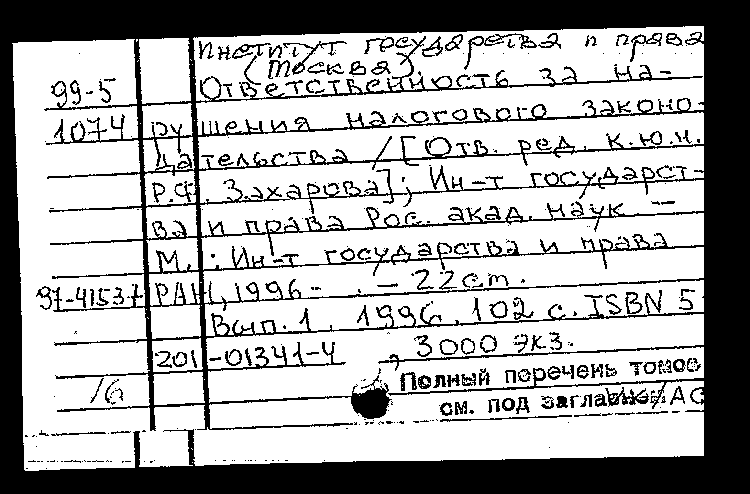 Институт государства и права
(Москва)
99-5 Ответственность за на-
1074 рушения налогового законо-
дательства / [Отв. ред. к.ю.н.
Р.Ф. Захарова]; Ин-т государст-
ва и права Рос. акад. наук. —
М.: Ин-т государства и права
97-41537 РАН, 1996- . — 22 см.
Вып. 1. 1996. 102 с. ISBN 5-
201-01341-4 3000 экз.
16 Полный перечень томов
см. под заглавием